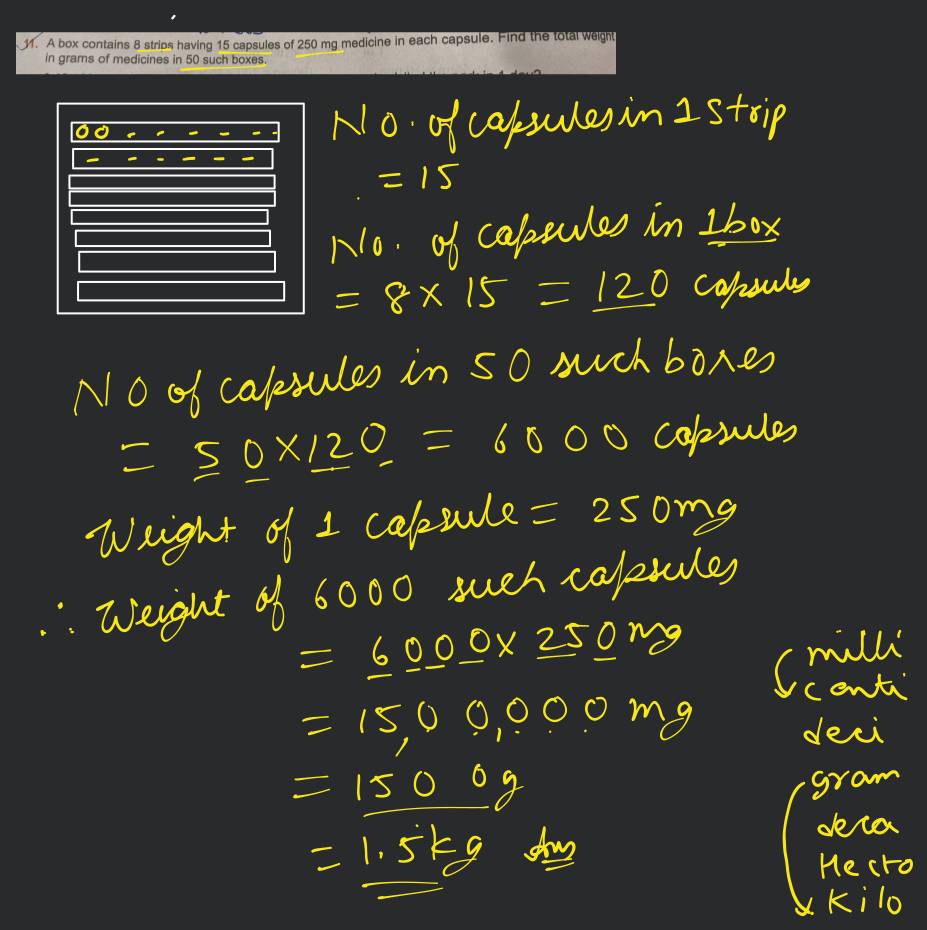 11. A box contains 8 strips having 15 capsules of 250 mg medicine in each capsule. Find the total weight
in grams of medicines in 50 such boxes.
No. of capsules in 1 strip
= 15
No. of capsules in 1 box
= 8 × 15 = 120 capsules
NO of capsules in 50 such boxes
= 50×120 = 6000 capsules
Weight of 1 capsule = 250mg
∴ Weight of 6000 such capsules
= 6000 × 250 mg
= 15,00,000 mg
= 1500g
= 1.5kg Ans
milli
centi
deci
gram
deca
Hecto
Kilo